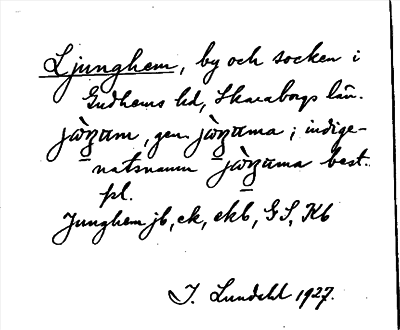 Ljunghem, by och socken i
Gudhems hd, Skaraborgs län.
jò̀ŋam, gen. jò̀ŋama; indige-
natsnamn jò̀ŋama best.
pl.
Junghem jb, ek, ekb, GS, Kb
I. Lundahl 1927.